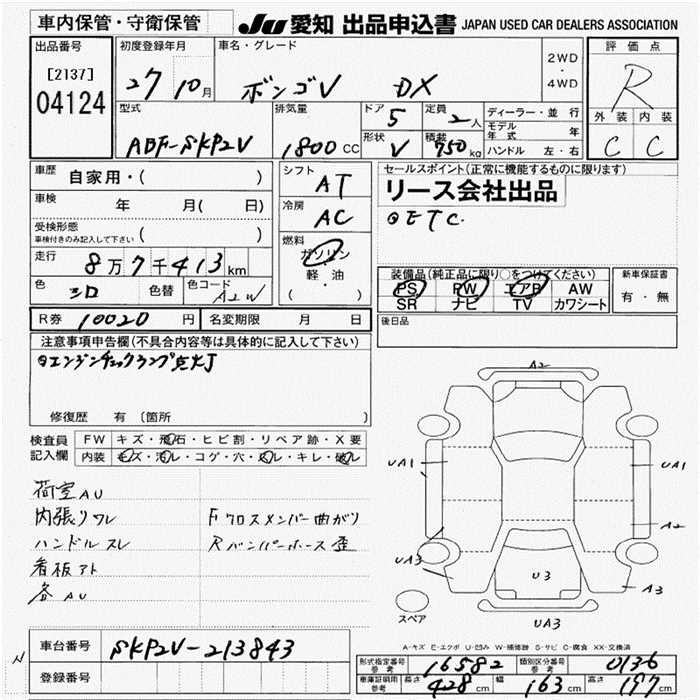 車内保管・守衛保管
JU 愛知 出品申込書 JAPAN USED CAR DEALERS ASSOCIATION
出品番号
[2137]
04124
初度登録年月
27 10月
車名・グレード
ボンゴV DX
2WD
・
4WD
評価点
R
外装 内装
C C
型式
ABF-SKP2V
排気量
1800 CC
ドア 5
形状 V
定員 2人
積載 750kg
ディーラー・並行
モデル年式 年
ハンドル 左・右
車歴
自家用・( )
車検
年 月( 日)
受検形態
車検付きのみ記入して下さい ( )
走行
8万7千413km
色
シロ
色替
色コード
A2W
シフト
AT
冷房
AC
燃料
ガソリン
・
軽・油
( ・ )
セールスポイント(正常に機能するものに限ります)
リース会社出品
◎ETC.
装備品(純正品に限り○をつけてください)
PS PW エアB AW
SR ナビ TV カワシート
新車保証書
有・無
後日品
R券 10020 円
名変期限 月 日
注意事項申告欄(不具合内容等は具体的に記入して下さい)
◎エンジンチェックランプ点灯
修復歴 有 [箇所
検査員
記入欄
FW キズ・飛石・ヒビ割・リペア跡・X要
内装 キズ・汚レ・コゲ・穴・ヌレ・キレ・破レ
荷室AU
内張りワレ
ハンドルスレ
看板アト
各AU
Fクロスメンバー曲がり
Rバンパーホース歪
A2
UA1
UA1
A2
UA3
U3
A3
UA3
スペア
A-キズ E-エクボ U-凹み W-補修跡 S-サビ C-腐食 XX-交換済
車台番号
SKP2V-213843
登録番号
N
形式指定番号
参考
16582
類別区分番号
参考
0136
車庫証明用
参考
長さ 428cm
幅 163cm
高さ 197cm